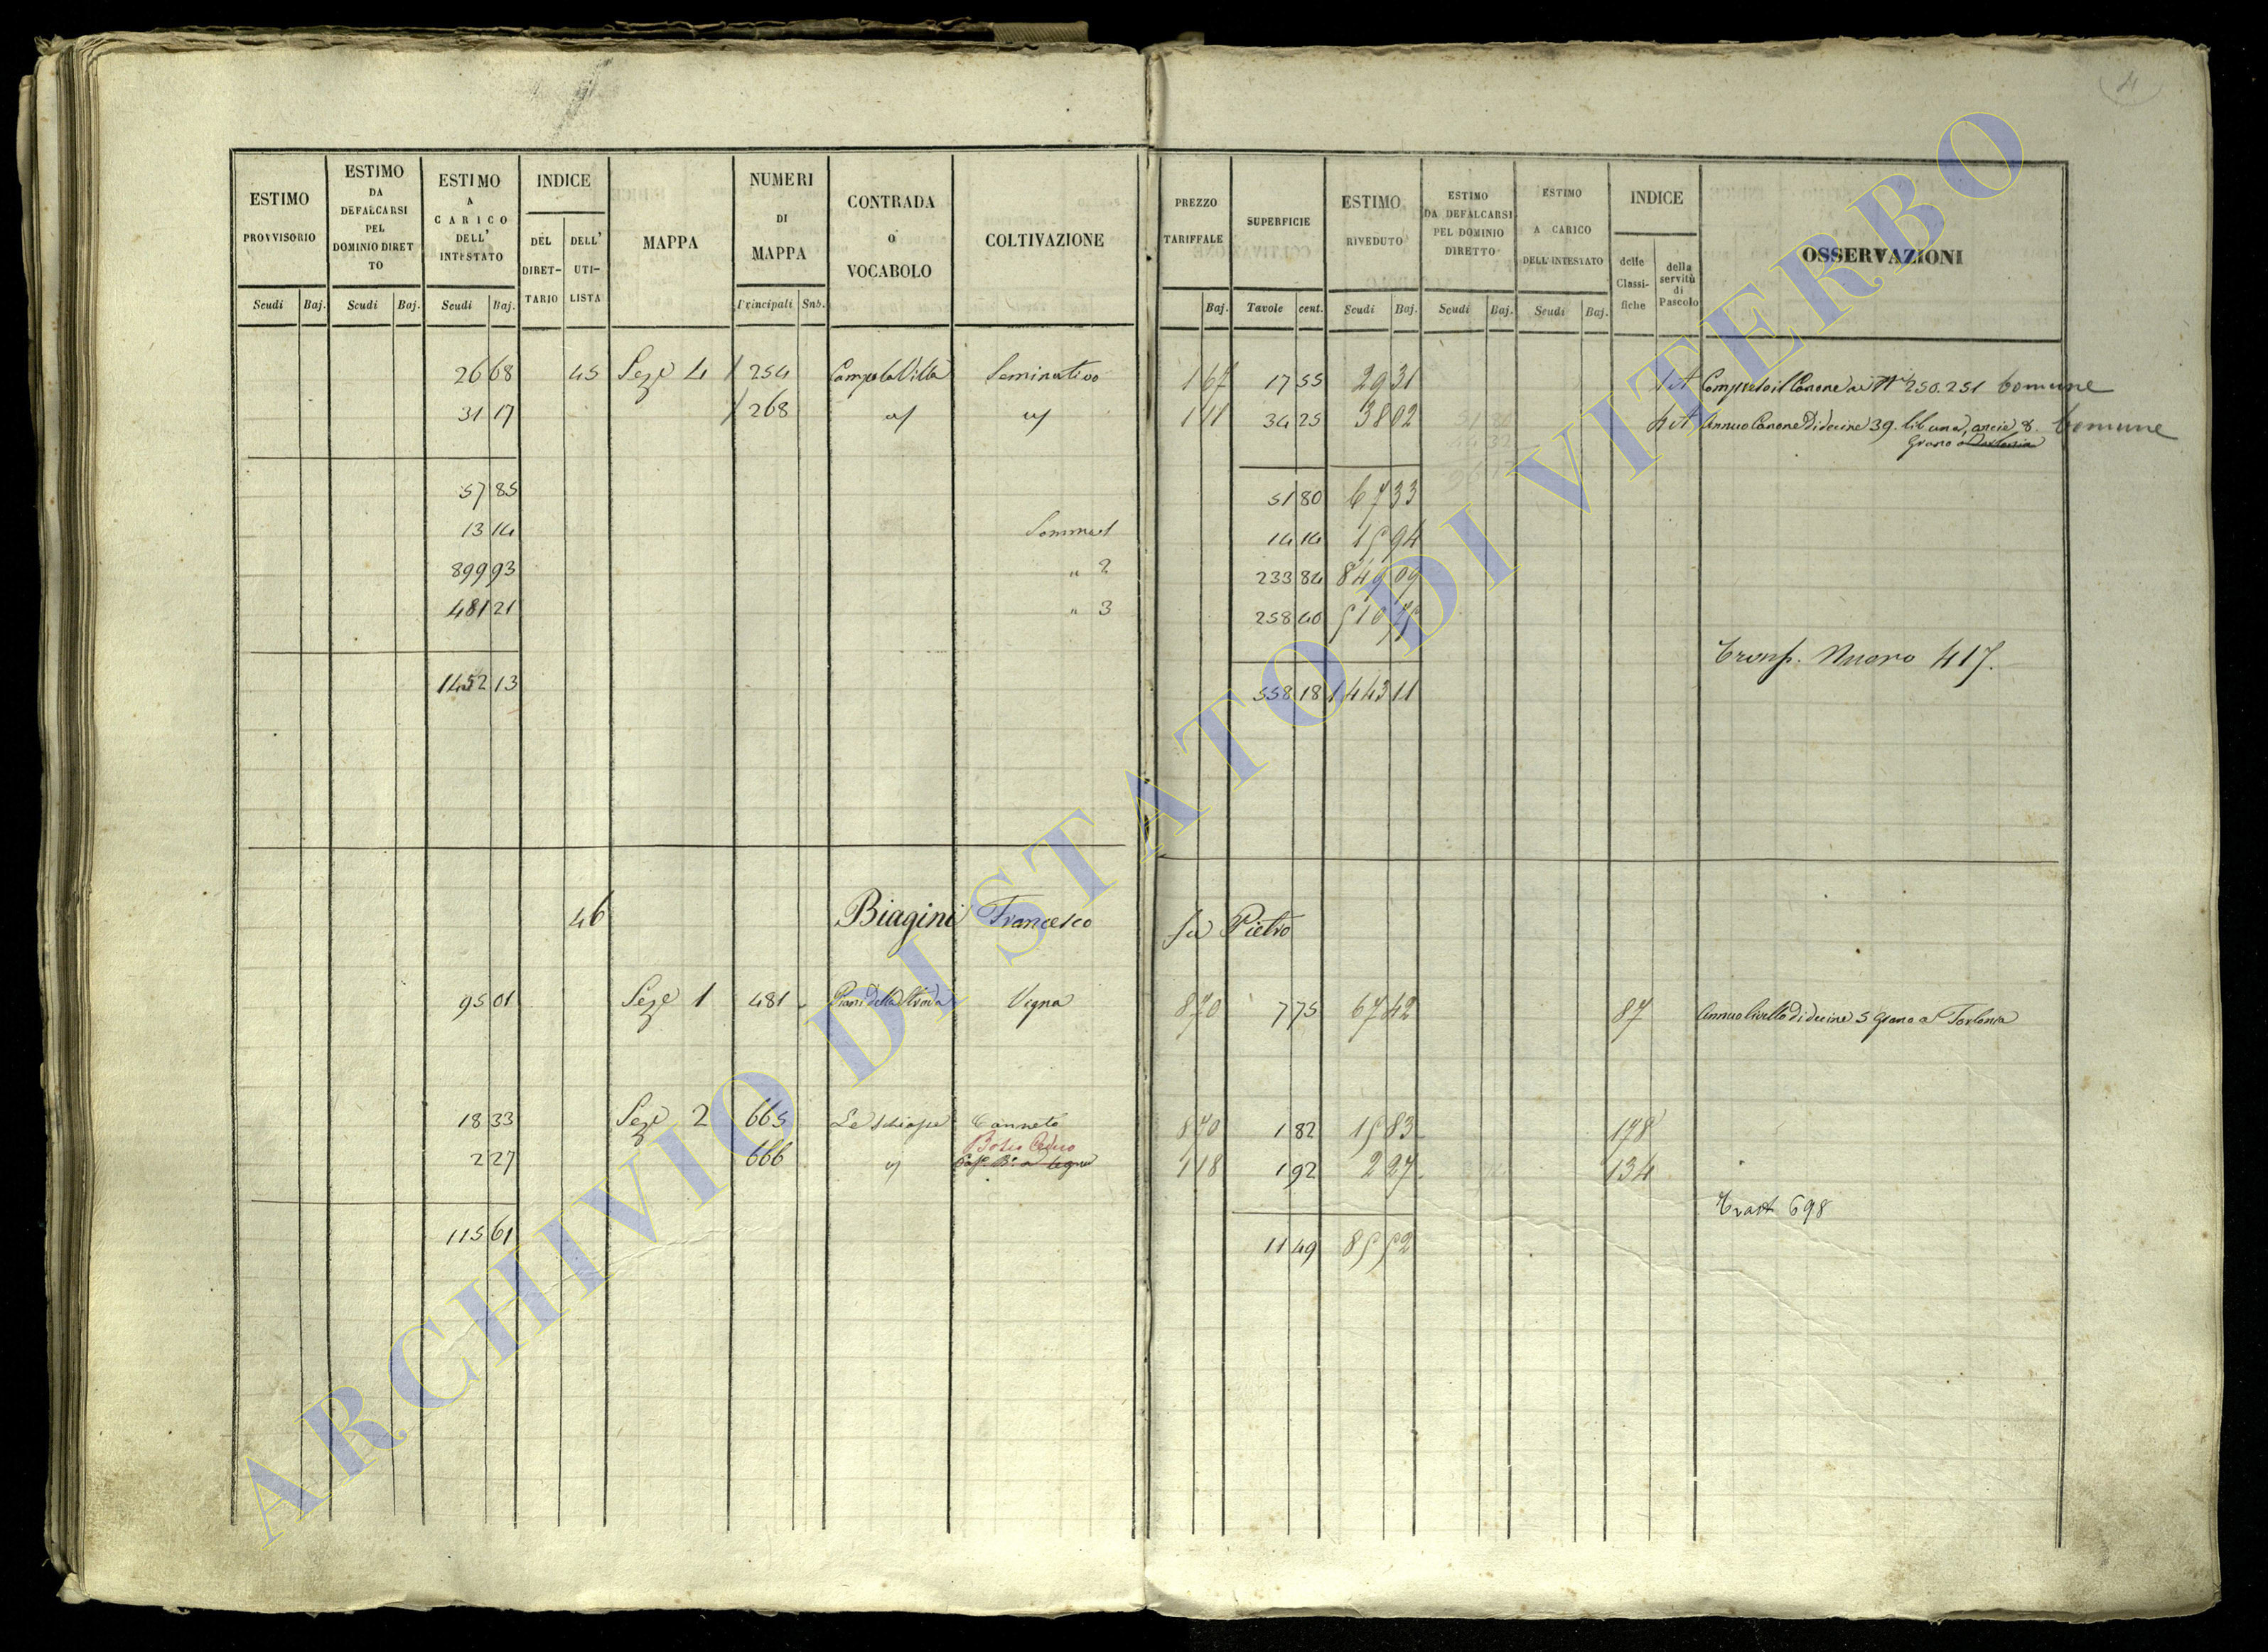 4
ESTIMO PROVVISORIO Scudi Baj.
ESTIMO DA DEFALCARSI PEL DOMINIO DIRETTO Scudi Baj.
ESTIMO A CARICO DELL' INTESTATO Scudi Baj.
INDICE DEL DIRETTARIO DELL' UTILISTA
MAPPA
NUMERI DI MAPPA Principali Sub.
CONTRADA O VOCABOLO
COLTIVAZIONE
PREZZO TARIFFALE Baj.
SUPERFICIE Tavole cent.
ESTIMO RIVEDUTO Scudi Baj.
ESTIMO DA DEFALCARSI PEL DOMINIO DIRETTO Scudi Baj.
ESTIMO A CARICO DELL'INTESTATO Scudi Baj.
INDICE delle Classifiche della servitù di Pascolo
OSSERVAZIONI
26 68 45 Seze 4 254 Campo la Villa Seminativo 1 67 17 55 29 31 1 A Compreso il Canone ai N 250.251 Comune
31 17 268 1 11 34 25 38 02 4 A Annuo Canone di decine 39. lib una, oncie 8. Comune
Grano a Torlonia
57 85 51 80 67 33
13 14 Sommaet 14 14 15 94
899 93 " 2 233 84 849 09
481 21 " 3 258 40 510 75
Trasp. Nuovo 417.
1452 13 558 18 1443 11
46 Biagini Francesco fu Pietro
95 01 Seze 1 481 Piani della Strada Vigna 8 70 7 75 67 42 87 Annuo livello di decine 5 Grano a Torlonia
18 33 Seze 2 665 Le schiappe Canneto 8 70 1 82 15 83 178
Bosco Ceduo
2 27 666 1 18 1 92 2 27 134
Trast 698
115 61 11 49 85 52
ARCHIVIO DI STATO DI VITERBO